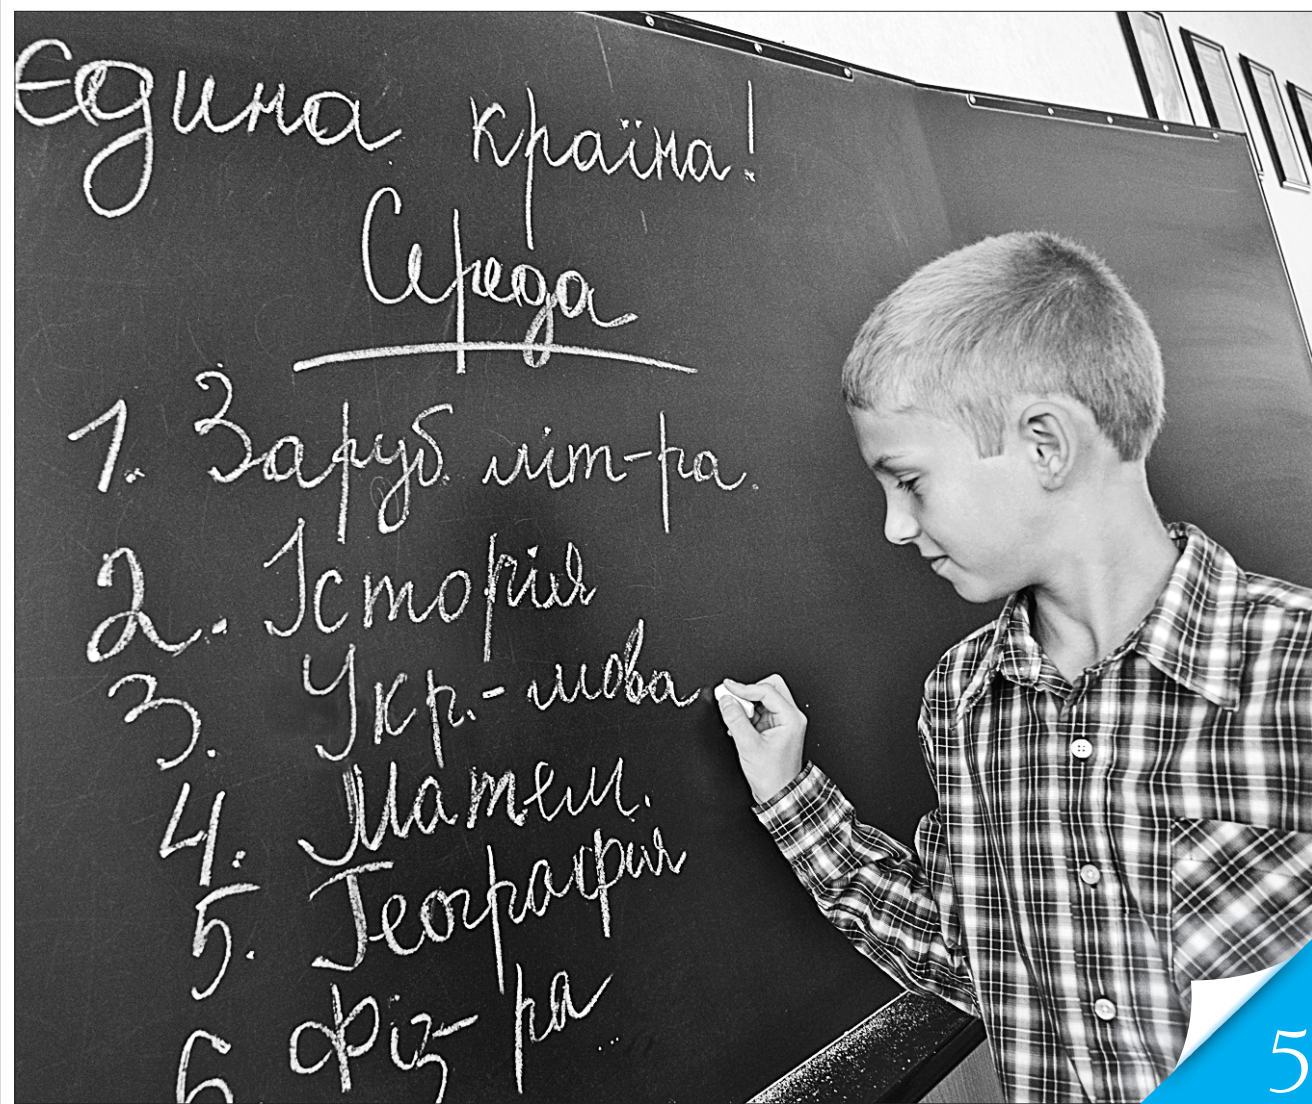 Єдина країна!
Середа
1. Заруб. літ-ра.
2. Історія
3. Укр.- мова
4. Матем.
5. Географія
6. Фіз-ра
5